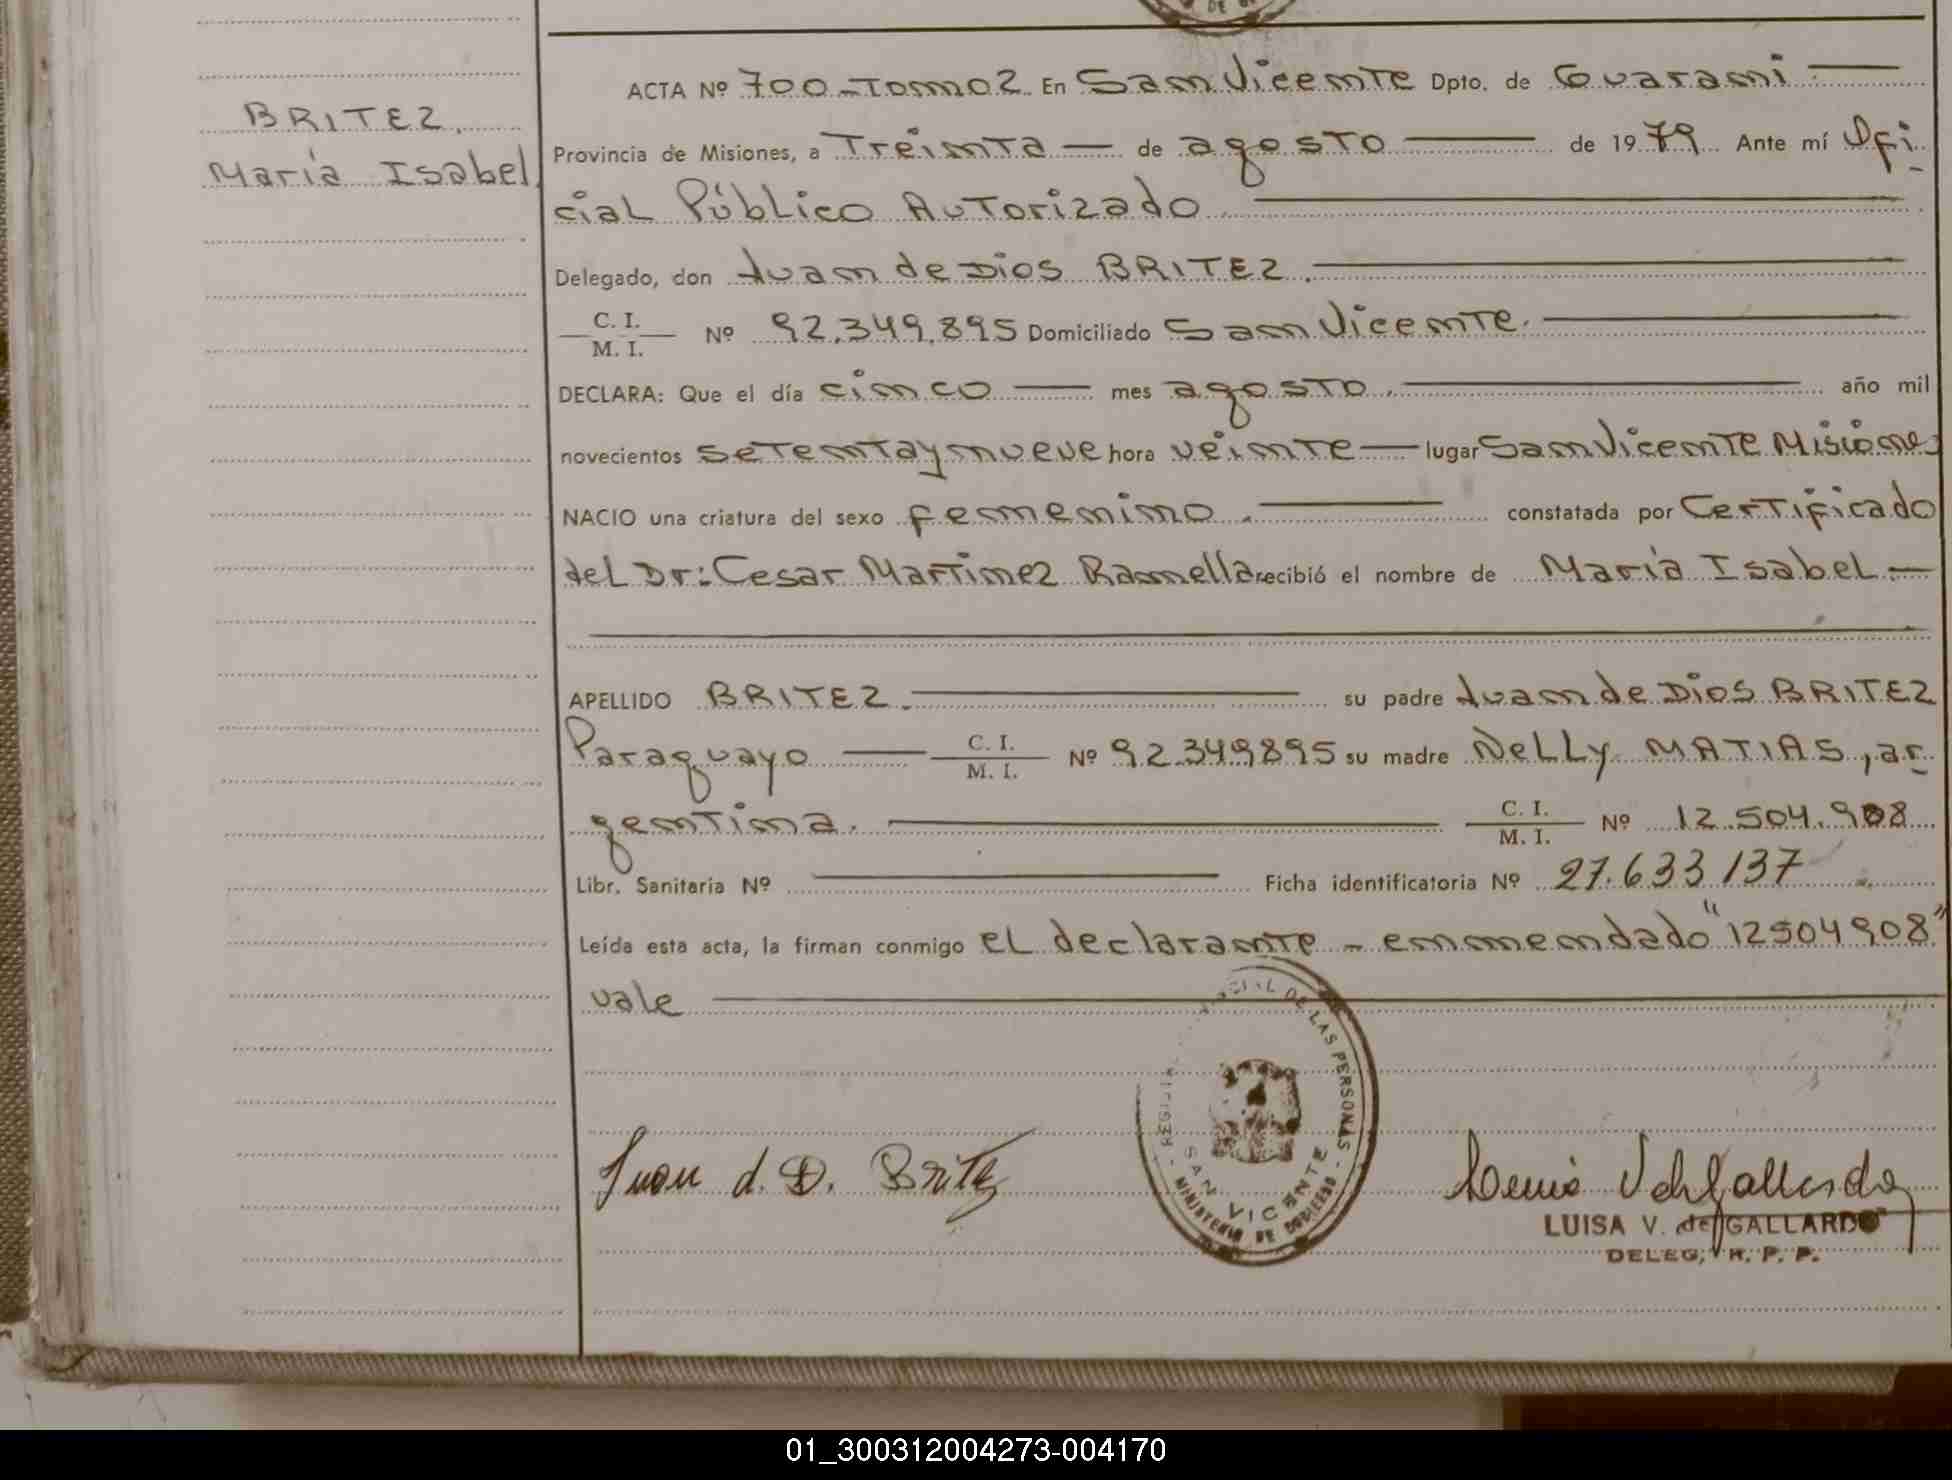 DE
BRITEZ,
María Isabel
ACTA Nº 700-Tomo 2 En San Vicente Dpto. de Guaraní
Provincia de Misiones, a Treinta de agosto de 1979 Ante mí Ofi-
cial Público Autorizado
Delegado, don Juan de Dios BRITEZ.
C. I.
M. I. Nº 92.349.895 Domiciliado San Vicente.
DECLARA: Que el día cinco mes agosto. año mil
novecientos setenta y nueve hora veinte lugar San Vicente Misiones
NACIO una criatura del sexo femenino. constatada por Certificado
del Dr: Cesar Martinez Ramella recibió el nombre de María Isabel
APELLIDO BRITEZ. su padre Juan de Dios BRITEZ
Paraguayo C. I. M. I. Nº 92.349895 su madre Nelly MATIAS, ar-
gentina. C. I. M. I. Nº 12.504.908
Libr. Sanitaria Nº Ficha identificatoria Nº 27.633.137
Leída esta acta, la firman conmigo el declarante - enmendado "12504908"
vale
DE LAS PERSONAS
SAN VICENTE
MINISTERIO DE GOBIERNO
Juan d. D. Britez
LUISA V. de GALLARDO
DELEG, R. P. P.
01_300312004273-004170